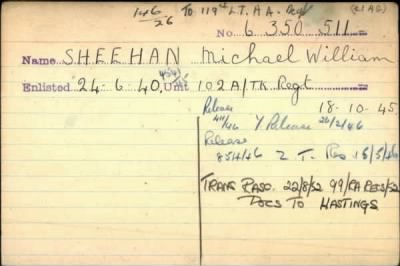 146/26 To 119th LT. A.A. Regt (21 AG)
No. 6 350 511
Name SHEEHAN Michael William
Enlisted 24-6-40 Unit 102 A/TK Regt
Release 18-10-45
41/46 Y Release 26/2/46
Release
85H/46 Z T. Res 15/5/46
TRANS RASC. 22/8/52 99/RA RECS/52
DOCS TO HASTINGS